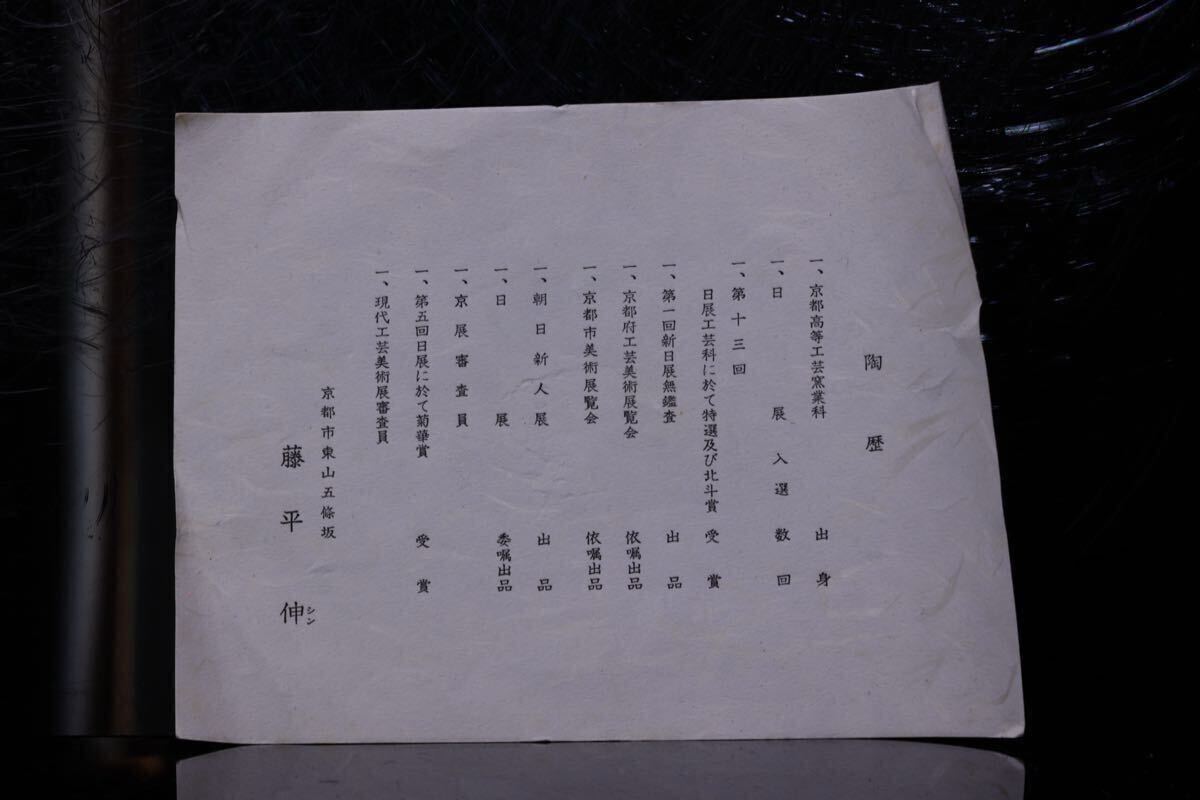 陶歴
一、京都高等工芸窯業科 出身
一、日展入選数回
一、第十三回
日展工芸科に於て特選及び北斗賞 受賞
一、第一回新日展無鑑査 出品
一、京都府工芸美術展覧会 依嘱出品
一、京都市美術展覧会 依嘱出品
一、朝日新人展 出品
一、日展 委嘱出品
一、京展審査員
一、第五回日展に於て菊華賞 受賞
一、現代工芸美術展審査員
京都市東山五條坂
藤平伸
シン